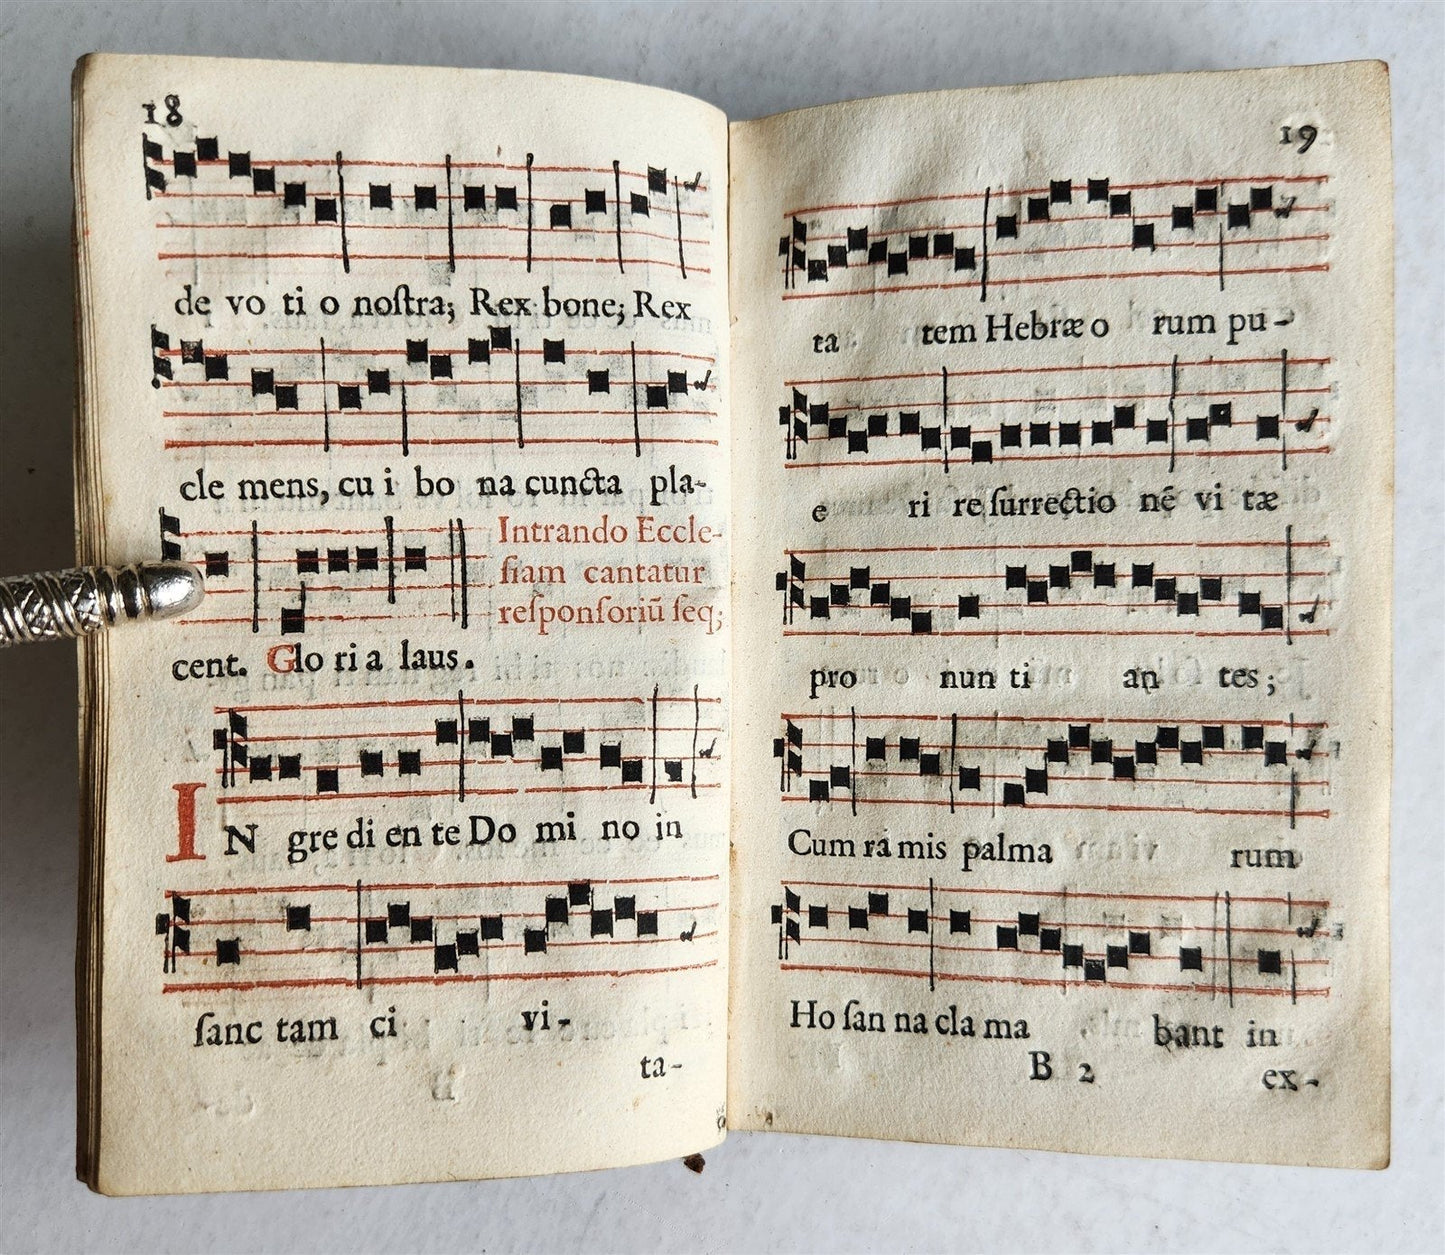 18
de vo ti o noſtra; Rex bone; Rex
cle mens, cu i bo na cuncta pla-
Intrando Eccle-
ſiam cantatur
reſponſoriū ſeq;
cent. Glo ri a laus.
IN gre di en te Do mi no in
ſanc tam ci vi-
ta-
19
ta tem Hebræ o rum pu-
e ri re ſurrectio nē vi tæ
pro nun ti an tes;
Cum ra mis palma rum
Ho ſan na cla ma bant in
B 2
ex-